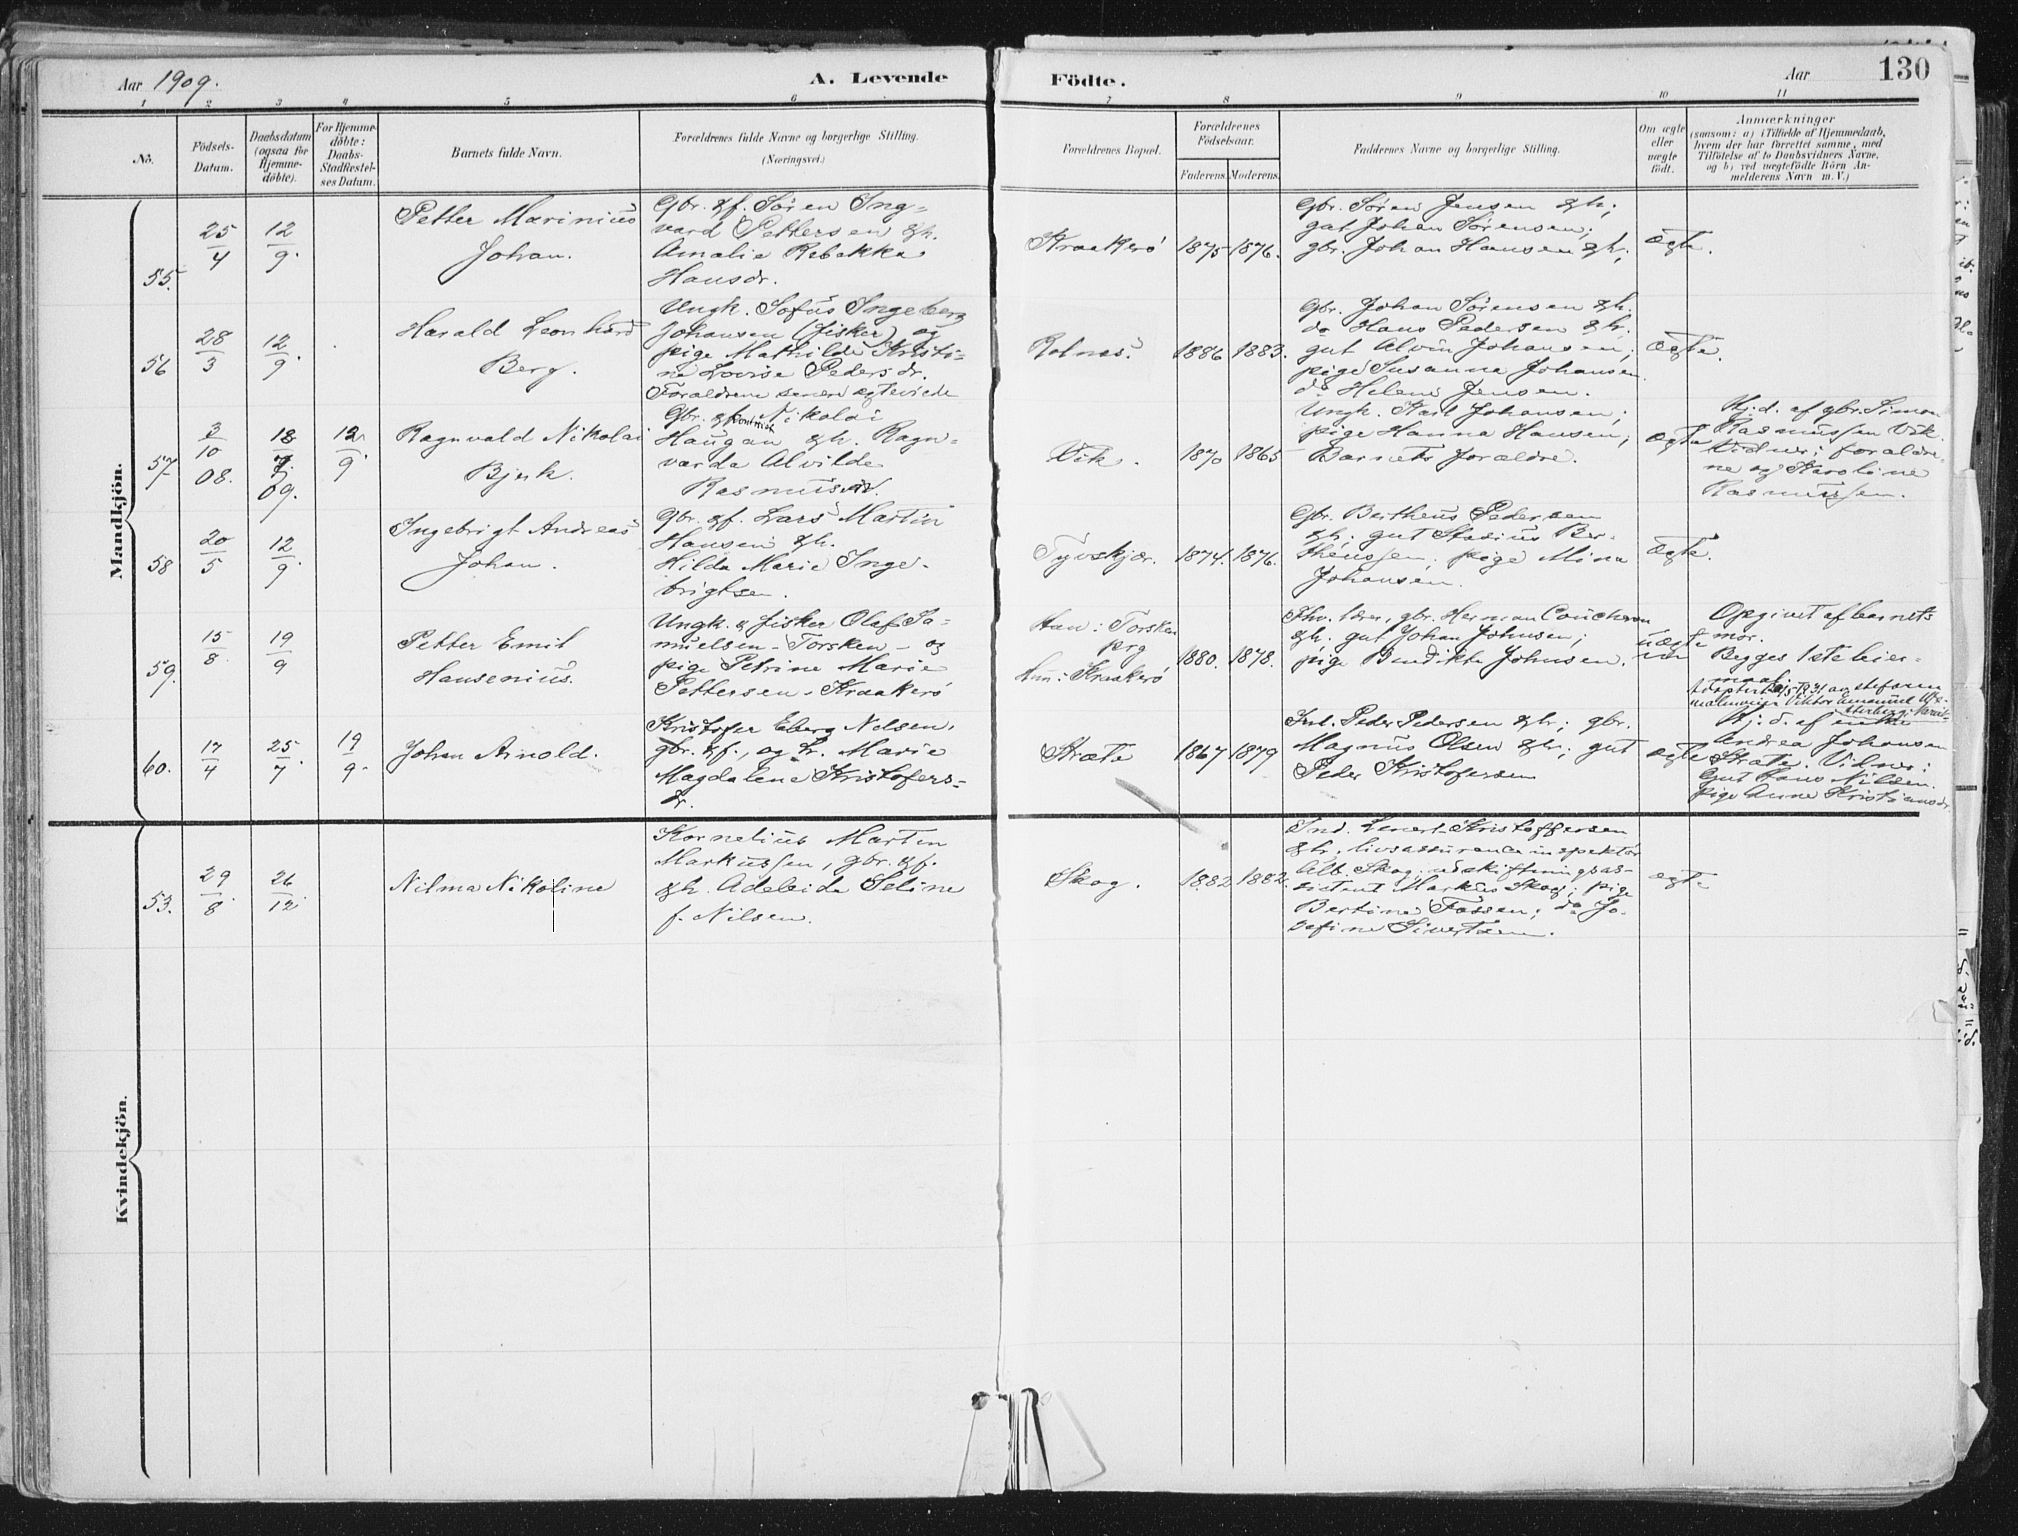 Aar 1909.
A. Levende Födte.
Aar
130
1 2 3 4 5 6 7 8 9 10 11
No.
Födsels-
Datum.
Daabsdatum
(ogsaa for
Hjemme-
döbte).
For Hjemme-
döbte:
Daabs-
Stadfæstel-
ses Datum.
Barnets fulde Navn.
Forældrenes fulde Navne og borgerlige Stilling.
(Næringsvei.)
Forældrenes Bopæl.
Forældrenes
Födselsaar.
Faderens. Moderens.
Faddernes Navne og borgerlige Stilling.
Om ægte
eller
uægte
födt.
Anmærkninger
(saasom: a) i Tilfælde af Hjemmedaab,
hvem der har forrettet samme, med
Tilföielse af to Daabsvidners Navne,
og b) ved uægtefödte Börn An-
melderens Navn m. V.)
Mandkjön.
55.
25/4
12/9
Petter Marinius
Johan.
Gbr. & f. Sören Ing-
vard Pettersen & h.
Amalie Rebekka
Hansdr.
Kraakerö
1875 1876.
Gbr. Sören Jensen & h;
gut Johan Sörensen;
gbr. Johan Hansen & h;
Ægte.
56
28/3
12/9
Harald Leonhard
Berg.
Ungk. Sofus Ingeberg
Johansen (fisker) og
pige Mathilde Kristi-
ne Lovise Pedersdr.
Forældrene senere egteviede
Rolnes.
1886 1883.
Gbr. Johan Sörensen & h;
do Hans Pedersen & h;
gut Alvin Johansen;
pige Susanna Johansen
do Helene Jensen.
Ægte.
57
3/10
08.
18/7
09.
12/9
Ragnvald Nikolai
Bjerk.
Gbr. & f Nikolai
Haugan & h. Ragn-
varda Alvilde
Rasmusdr.
Vik.
1870 1865
Ungk. Karl Johansen;
pige Hanna Hansen;
Barnets forældre.
Ægte
Hj.d. af gbr. Simon
Rasmussen Vik.
Vidner: foraldre-
ne og Karoline
Rasmussen.
58
20/5
12/9
Ingebrigt Andreas
Johan.
Gbr. & f. Lars Martin
Hansen & h.
Hilda Marie Inge-
brigtsen.
Tyvskjær.
1874. 1876.
Gbr. Bertheus Pedersen
& h; gut Stadius Ber-
theussen; pige Mina
Johansen.
Ægte.
59.
15/8
19/9
Petter Emil
Hansenius.
Ungk. & fisker Olaf Sa-
muelsen - Torsken - og
pige Petrine Marie
Pettersen - Kraakerö
Han: Torsken
Hun: Kraakerö
1880. 1878.
gbr. Herman
& h. gut Johan Johnsen;
pige Bendikte Johnsen.
uægte
Opgivet af barnets
mor.
Begges 1ste leier-
maal.
60.
17/4
25/7
19/9
Johan Arnold.
Kristofer Eberg Nilsen,
gbr. & f., og h. Marie
Magdalene Kristofers-
dr.
Stræte
1867 1879
Ind. Peder Pedersen & h; gbr.
Magnus Olsen & h; gut
Peder Kristofersen
ægte
Hj. d. af enke
Andrea Johansen
Stræte. Vidner:
Gut Hans Nilsen.
pige Anne Kristiansdr
Kvindekjön.
53.
29/8
26/12
Nilma Nikoline
Kornelius Martin
Markussen, gbr. & f.
& h. Adeleide Seline
f. Nilsen.
Skog.
1882 1882.
Ind. Lenert Kristoffersen
& h. livsassuranceinspektör
Alb. Skog; udskiftningsas-
sistent Markus Skog; pige
Bertine Fossen; do Jo-
sefine Sivertsen.
ægte